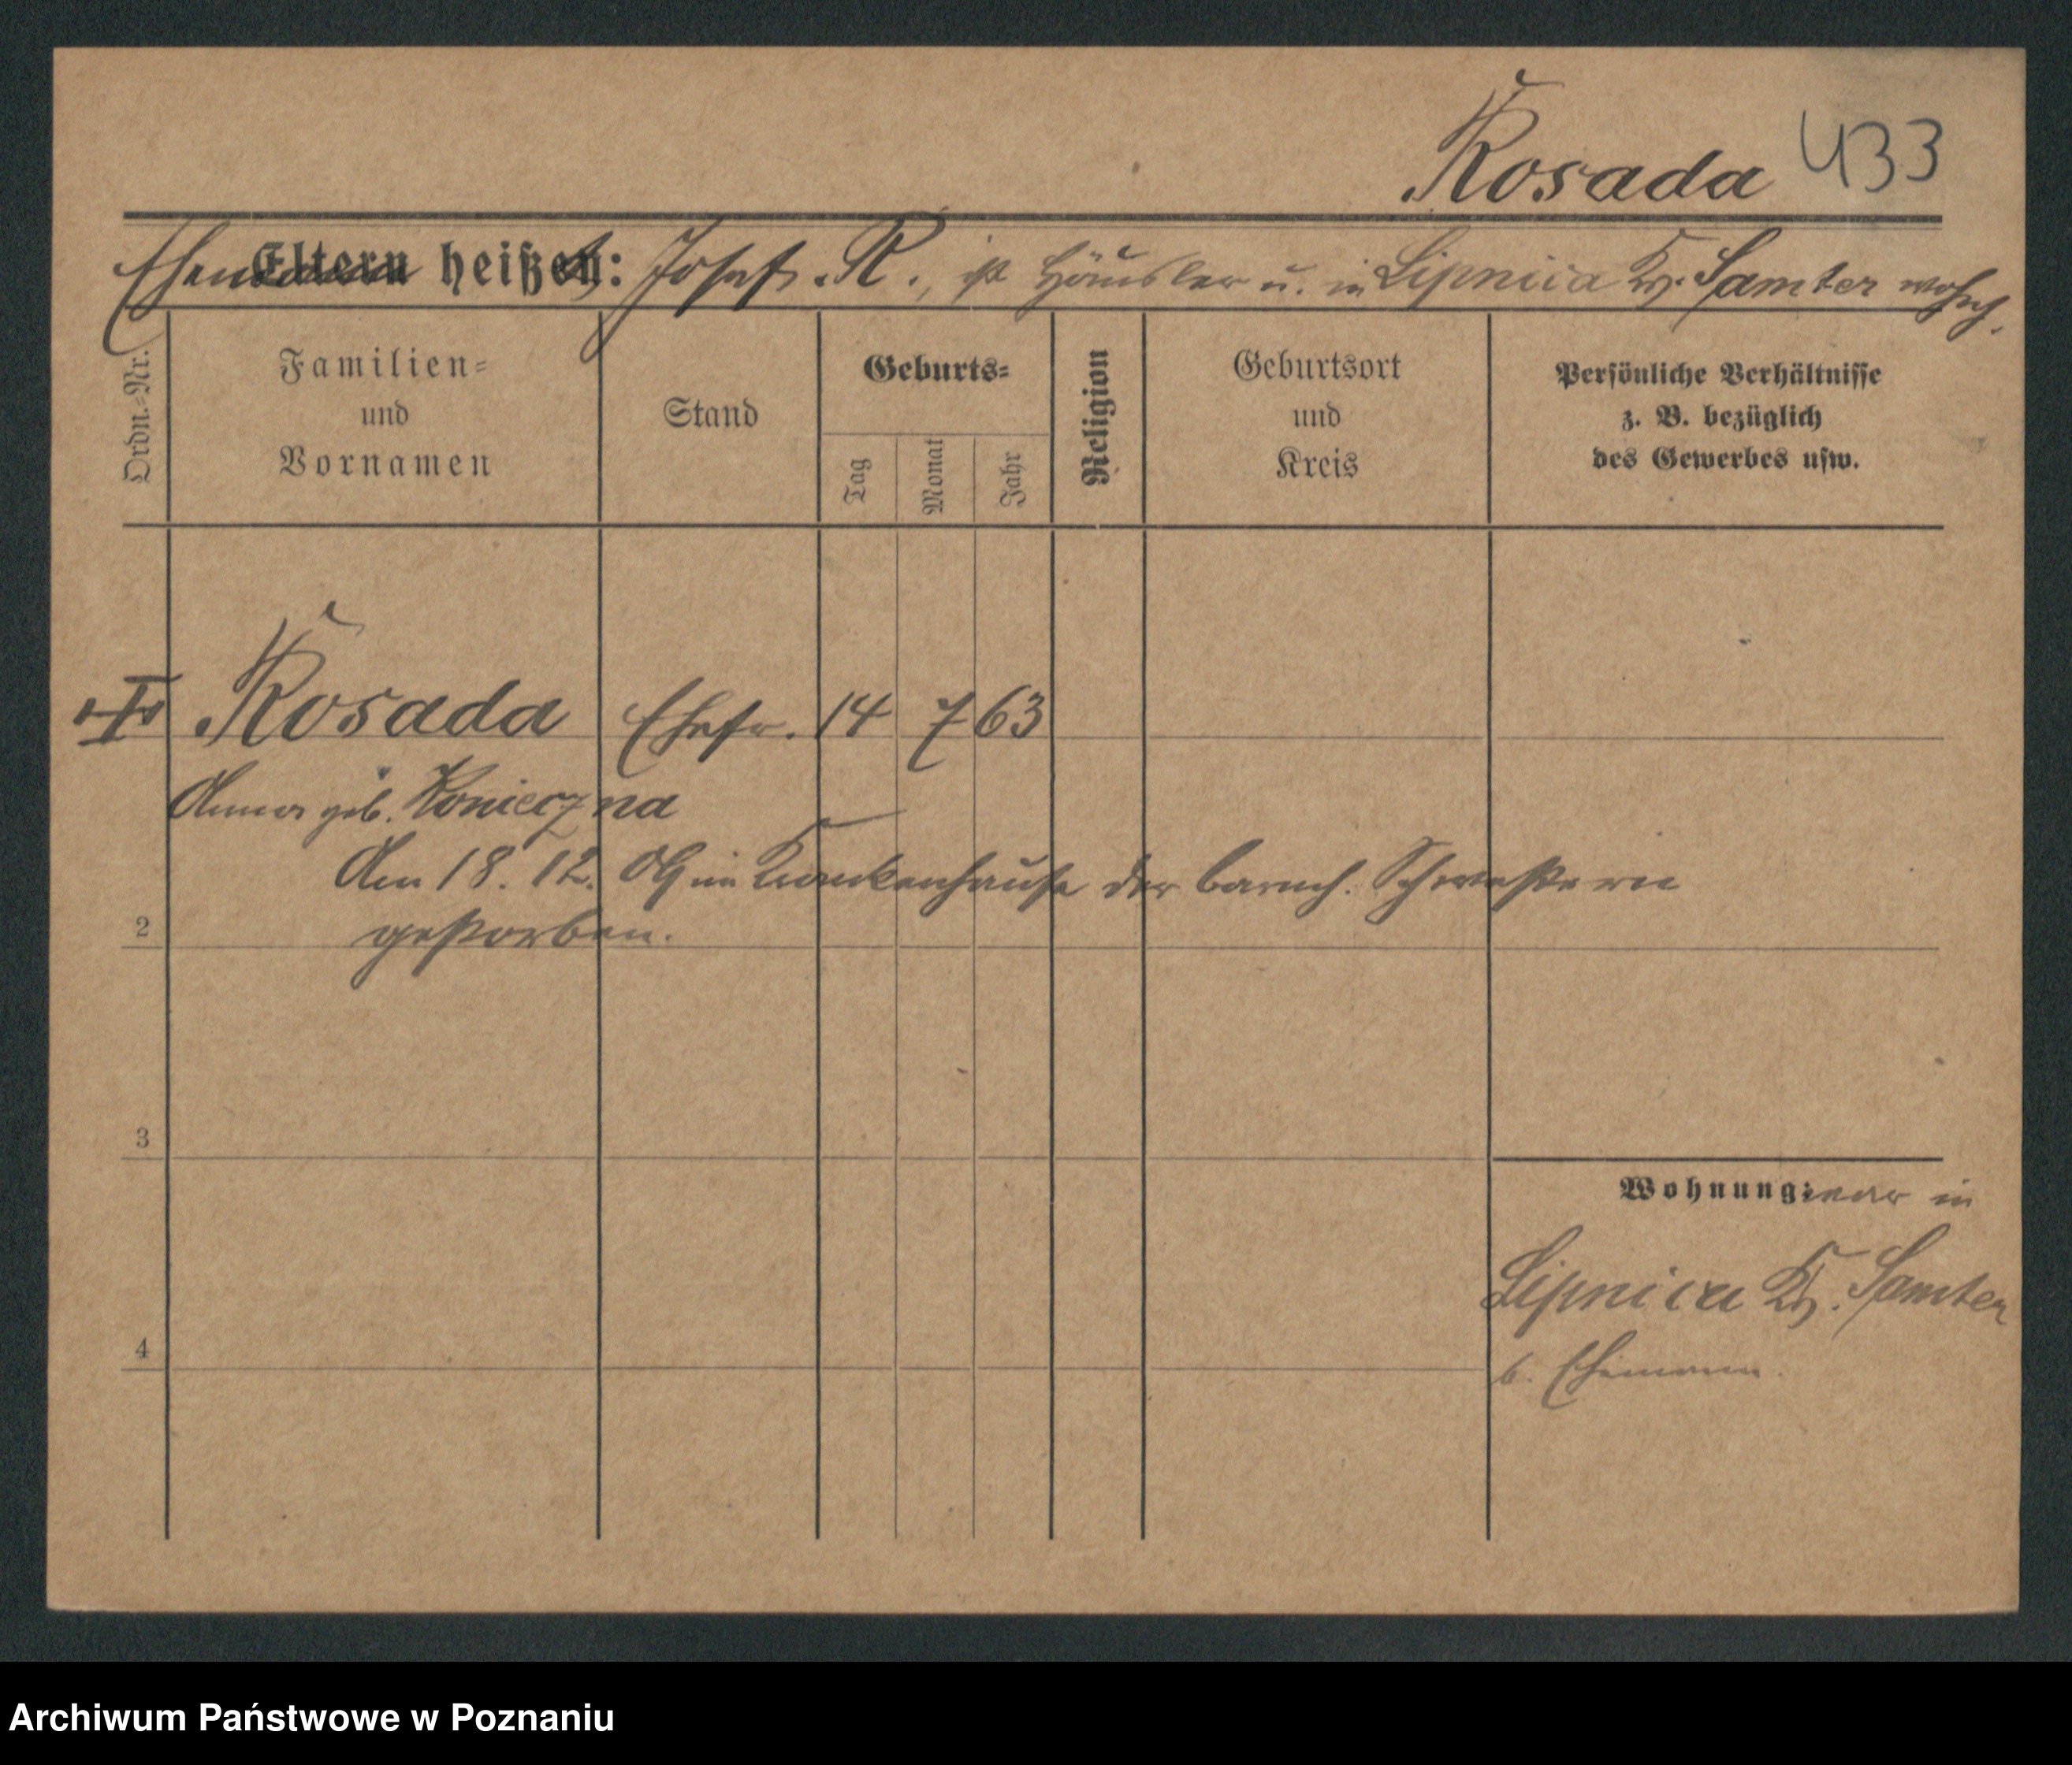 Rosada 433
Ehemann heißt: Josef R., ist Häusler u. in Lipnica Kr. Samter wohnh.
Ordn.=Nr.
Familien=
und
Vornamen
Stand
Geburts=
Tag
Monat
Jahr
Religion
Geburtsort
und
Kreis
Persönliche Verhältnisse
z. B. bezüglich
des Gewerbes usw.
Rosada Ehefr. 14 7 63
Anna geb. Konieczna
Am 18. 12. 04 im Krankenhause der barmh. Schwestern
2 gestorben.
3
Wohnung: war in
Lipnica Kr. Samter
4
b. Ehemann.
Archiwum Państwowe w Poznaniu